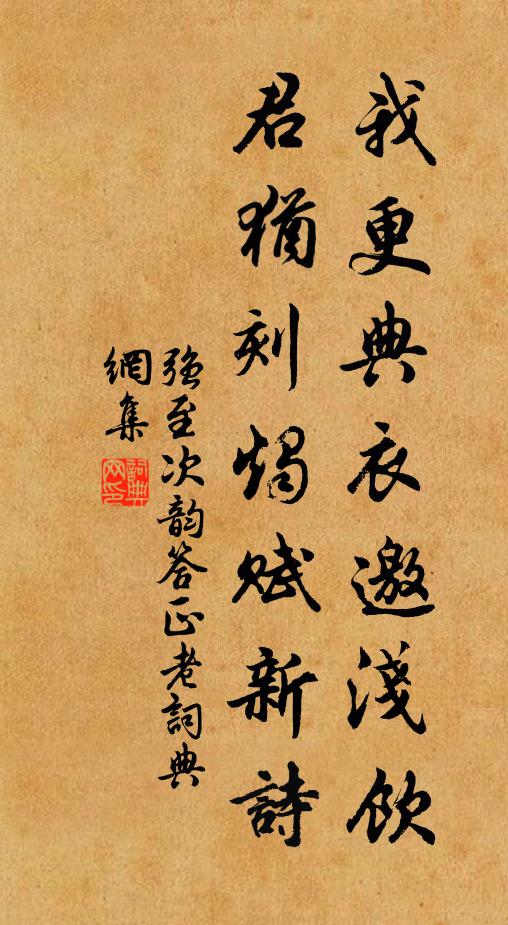 我更典衣邀淺飲
君猶刻燭賦新詩
强至次韵答正老詞典
網集
詞典網印